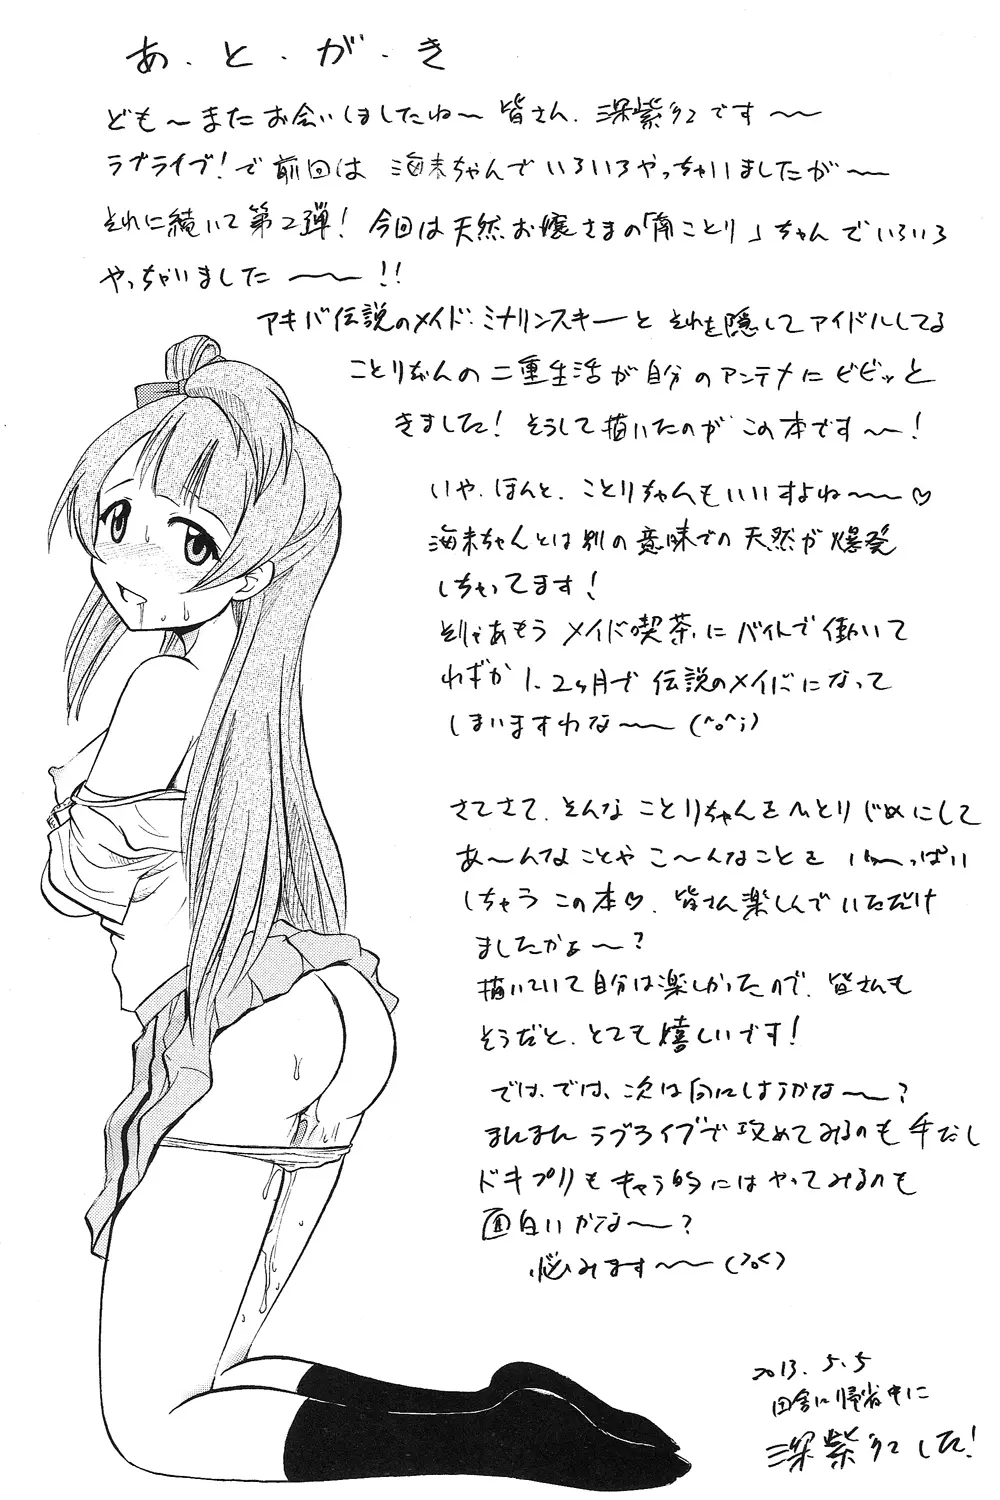 あ・と・が・き
ども～またお会いしましたね～皆さん、深紫幻です～～
ラブライブ!で前回は海未ちゃんでいろいろやっちゃいましたが～～
それに続いて第2弾!今回は天然お嬢さまの「南ことり」ちゃんでいろいろ
やっちゃいました～～!!
アキバ伝説のメイド・ミナリンスキーとそれを隠してアイドルしてる
ことりちゃんの二重生活が自分のアンテナにビビッと
きました!そうして描いたのがこの本です～!
いや、ほんと、ことりちゃんもいいすよね～～♡
海未ちゃんとは別の意味での天然が爆発
しちゃってます!
そりゃあもうメイド喫茶にバイトで働いて
わずか1、2ヶ月で伝説のメイドになって
しまいますわな～～(^o^;)
さてさて、そんなことりちゃんをひとりじめにして
あ～んなことやこ～んなことをい～っぱい
しちゃうこの本♡、皆さん楽しんでいただけ
ましたかよ～?
描いていて自分は楽しかったので、皆さんも
そうだと、とても嬉しいです!
では、では、次は何にしようかな～～?
まんまんラブライブで攻めてみるのも手だし
ドキプリもキャラ的にはやってみるのも
面白いかな～～?
悩みます～～(>o<)
2013.5.5
田舎に帰省中に
深紫幻でした!